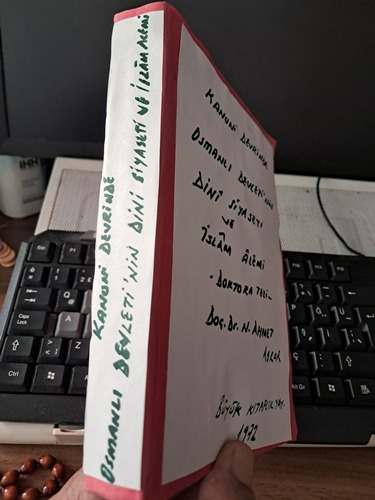 KANUNİ DEVRİNDE
OSMANLI DEVLETİ'NİN DİNİ SİYASETİ VE İSLÂM ALEMİ
KANUNİ DEVRİNDE
OSMANLI DEVLETİ'NİN
DİNİ SİYASETİ
VE
İSLÂM ÂLEMİ
-DOKTORA TEZİ-
Doç. Dr. N. AHMET
ASRAR
BÜYÜK KİTAPLIK YAY.
1972
Caps Lock
A
Alt Gr
Ctrl